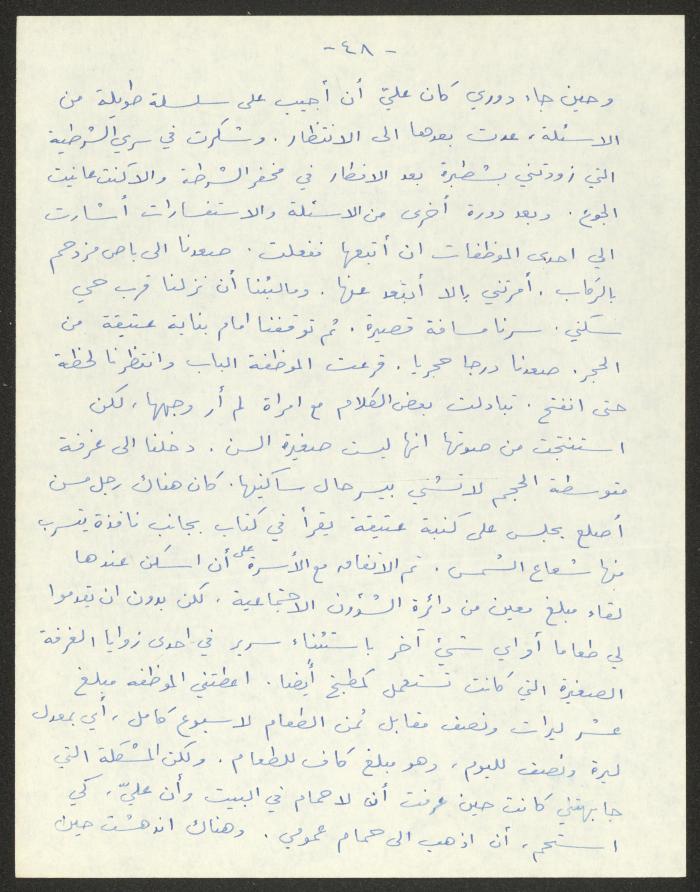 - ٤٨ -
وحين جاء دوري كان عليّ أن أجيب على سلسلة طويلة من
الاسئلة، عدت بعدها الى الانتظار. وشكرت في سري الشرطية
التي زودتني بشطيرة بعد الافطار في مخفر الشرطة والا كنت عانيت
الجوع. وبعد دورة أخرى من الاسئلة والاستفسارات أشارت
الي احدى الموظفات ان أتبعها ففعلت. صعدنا الى باص مزدحم
بالركاب. أمرتني بالا أبتعد عنها. ومالبثنا أن نزلنا قرب حي
سكني. سرنا مسافة قصيرة. ثم توقفنا امام بناية عتيقة من
الحجر. صعدنا درجا حجريا. قرعت الموظفة الباب وانتظرنا لحظة
حتى انفتح. تبادلت بعض الكلام مع امراة لم أر وجهها، لكن
استنتجت من صوتها انها ليست صغيرة السن. دخلنا الى غرفة
متوسطة الحجم لا تشي بيسر حال ساكنيها. كان هناك رجل مسن
أصلع يجلس على كنبة عتيقة يقرأ في كتاب بجانب نافذة يتسرب
منها شعاع الشمس. تم الاتفاق مع الأسرة على أن اسكن عندها
لقاء مبلغ معين من دائرة الشؤون الاجتماعية، لكن بدون ان يقدموا
لي طعاما أو اي شيئ آخر باستثناء سرير في احدى زوايا الغرفة
الصغيرة التي كانت تستعمل كمطبخ أيضا. اعطتني الموظفه مبلغ
عشر ليرات ونصف مقابل ثمن الطعام لاسبوع كامل، أي بمعدل
ليرة ونصف لليوم، وهو مبلغ كاف للطعام. ولكن المشكلة التي
جابهتني كانت حين عرفت أن لا حمام في البيت وأن عليّ، كي
استحم، أن اذهب الى حمام عمومي. وهناك اندهشت حين